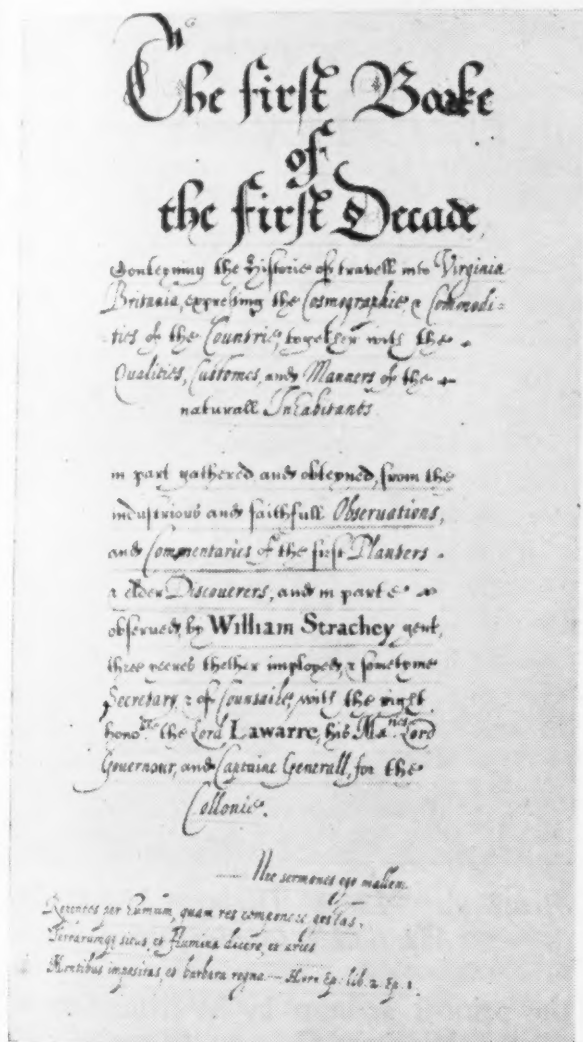 The first Booke
of
the first Decade
Conteyning the Historie of travell into Virginia
Britania, expressing the Cosmographie, & Comodi=
ties of the Countrie, together with the
Qualities, Customes, and Manners of the
naturall Inhabitants
in part gathered and obteyned, from the
industrious and faithfull Observations,
and Commentaries of the first Planters
& elder Discouerers, and in parte
obserued, by William Strachey gent,
three yeeres thether imployed, & sometyme
Secretary, & of Counsaile, with the right
hono.ble the Lord Lawarre, his Ma.ties Lord
Gouernour, and Captaine Generall, for the
Collonie.
— Nec sermones ego mallem
Repentes per humum, quam res componere gestas,
Terrarumq; situs, et flumina dicere, et arces
Montibus impositas, et barbara regna — Hora Ep: lib. 2. Ep. 1.